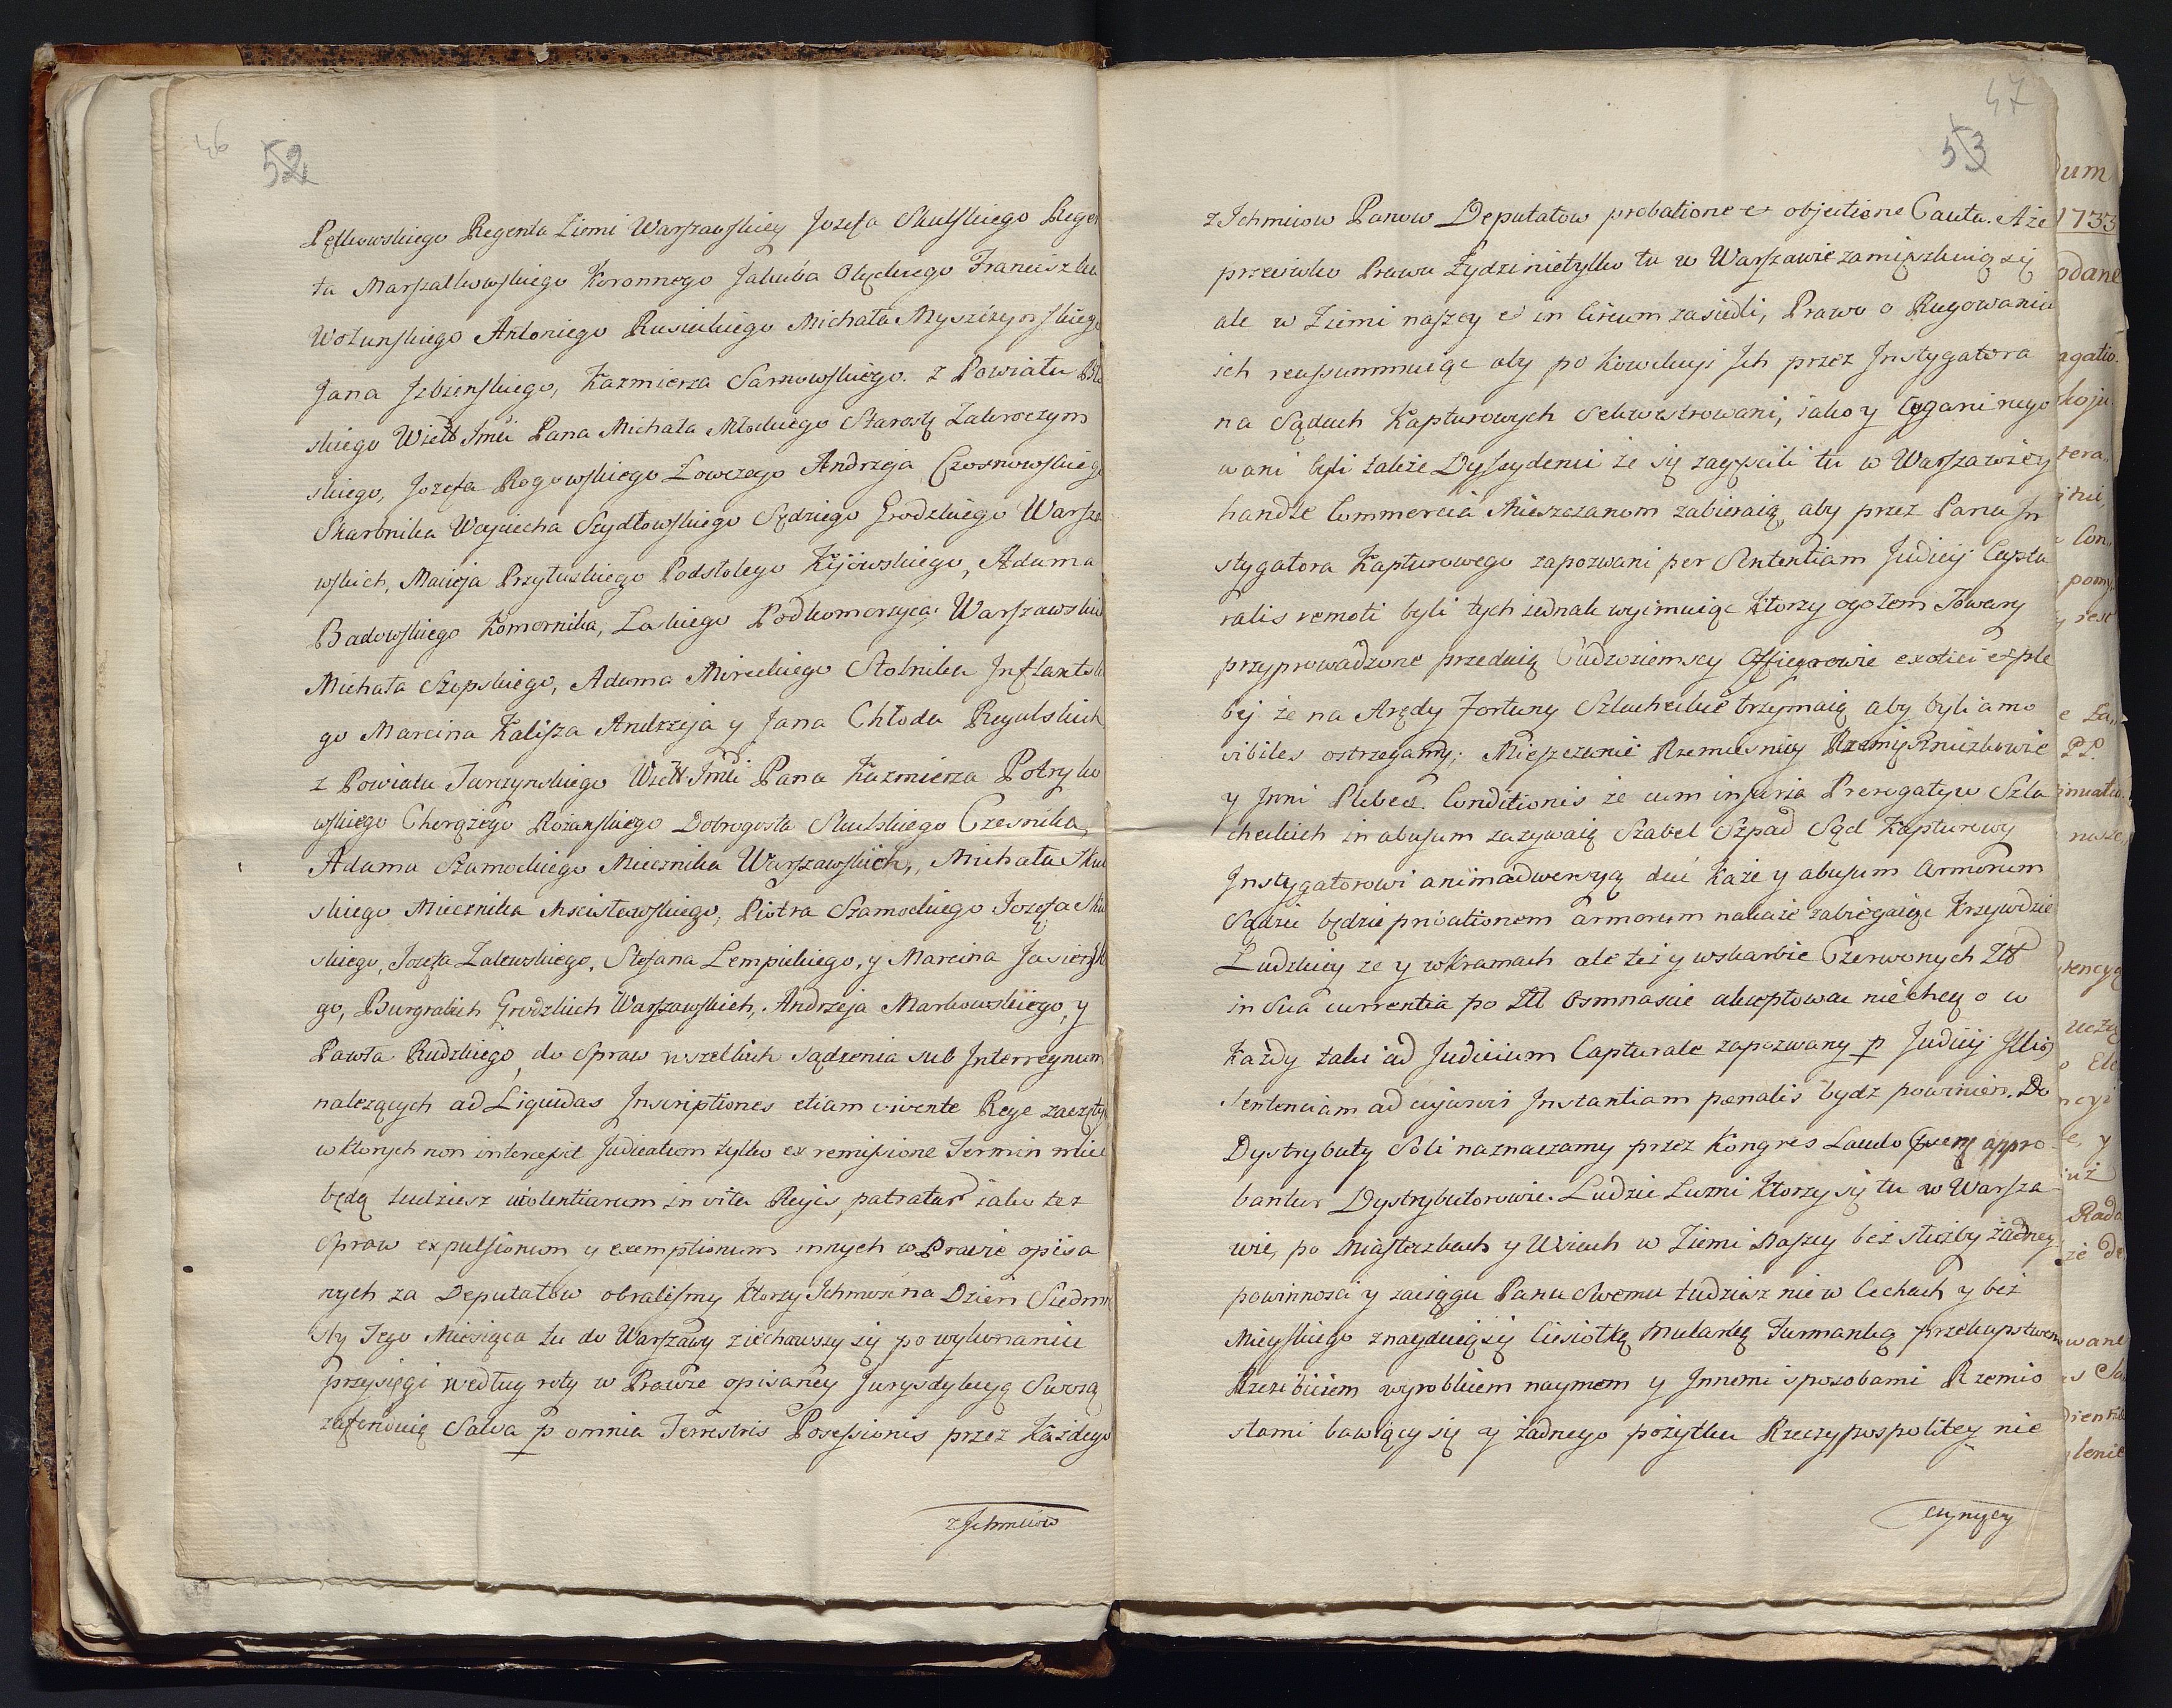 46
52
Pętkowskiego Regenta Ziemi Warszawskiey Jozefa Skulskiego Regen
ta Marszałkowskiego Koronnego Jakuba Olędzkiego Franciszka
Wołunskiego Antoniego Rusieckiego Michała Myszczynskiego
Jana Jzbienskiego, Kazmierza Sarnowskiego. z Powiatu Bło
skiego Wiell Jmci Pana Michała Młockiego Starosty Zakroczym
skiego, Jozefa Rogowskiego Łowczego Andrzeja Czosnowskiego
Skarbnika Woyciecha Szydłowskiego Sędziego Grodzkiego Warsza
wskich, Macieja Przyłuskiego Podstolego Kijowskiego, Adama
Badowskiego Komornika, Łaskiego Podkomorzyca Warszawskie
Michała Szopskiego, Adama Mireckiego Stolnika Jnflantskie
go Marcina Kalisza Andrzeja y Jana Chłoda Regulskich
z Powiatu Tarczynskiego Wiell Jmci Pana Kazmierza Potryko
wskiego Chorążego Rożanskiego Dobrogosta Skulskiego Czesnika,
Adama Szamockiego Miecznika Warszawskich, Michała Skul
skiego Miecznika Mscisławskiego, Piotra Szamockiego Jozefa Skul
skiego, Jozefa Zalewskiego, Stefana Lempickiego, y Marcina Jasienskie
go, Burgrabich Grodzkich Warszawskich, Andrzeja Markowskiego, y
Pawła Rudzkiego, do Spraw wszelkich sądzenia sub Interregnum
należących ad Liquidas Jnscriptiones etiam vivente Rege zaczętych
w ktorych non intercessit Judicatum tylko ex remissione Termin mieć
będą tudziesz violentiarum in vita Regis, patratar jako tez
Spraw expulsionum y exemptionum innych w Prawie opisa
nych za Deputatow obralismy ktorzy Jchmość na Dzień Siedmna
sty Tego Miesiąca tu do Warszawy ziechawszy się po wykonaniu
przysięgi według roty w Prawie opisaney Jurysdykcyą Swoią
zafunduią Salva p omnia Terrestris Posessionis przez Każdego
z Jchmciow
47
53
z Jchmciow Panow Deputatow probatione et objectione Cauta. A że
przeciwko Prawu Żydzi nietylko tu w Warszawie zamięszkuią się
ale w Ziemi naszey et in circum zasiedli, Prawo o Rugowaniu
ich reassummuiąc aby po Kowikcyi Jch przez Jnstygatora
na Sądach Kapturowych Sekwestrowani, iako y Cygani rugo
wani byli także Dyssydenci że się zagęscili tu w Warszawie y
handle Commercia Mieszczanom zabieraią, aby przez Pana Jn
stygatora Kapturowego zapozwani per Sententiam Judicij Captu
ralis remoti byli tych iednak wyimuiąc Ktorzy ogołem Towary
przyprowadzone przedaią Cudzoziemscy Officyerowie exotici et ple
bej że na Arędy Fortuny Szlacheckie trzymaią aby byli amo
vibiles ostrzegamy; Mieszczanie Rzemiesnicy Rzemięsniczkowie
y Jnni Plebea. Conditionis że cum injuria Prerogatyw Szla
checkich in abusum zażywaią Szabel Szpad Sąd Kapturowy
Jnstygatorowi animadwersyą dać Każe y abusum Armorum
Sądzic będzie privationem armorum nakaże zabiegaiąc Krzywdzie
Ludzkiey że y w Kramach ale też y w skarbie Czerwonych Złł
in Sua currentia po Złł Osmnascie akceptowac niechcą o w
Każdy taki ad Judicium Capturale zapozwany p Judicij Jllius
Sententiam ad cujusvis Jnstantiam pænalis bydz powinien. Do
Dystrybuty Soli naznaczamy przez Kongres Laudo appro
bantur Dystrybutorowie. Ludzie Luzni Ktorzy się tu w Warsza
wie, po Miasteczkach y Wsiach w Ziemi Naszey bez służby żadney
powinnosci y zaciągu Panu Swemu tudziesz nie w Cechach y bez
Mieyskiego znayduią się Ciesiołką Mularką Furmanką przekupstwem
Rzezibiciem wyrobkiem naymem y Jnnemi sposobami Rzemio
słami bawiący się y żadnego pożytku Rzeczypospolitey nie
czyniący
dum
1733
odane